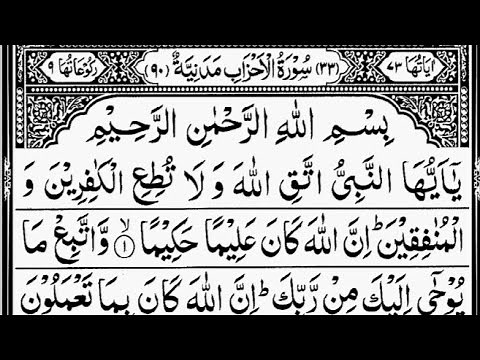 اٰیَاتُهَا ۷۳ (۳۳) سُوْرَةُ الْاَحْزَابِ مَدَنِيَّةٌ (۹۰) رُكُوْعَاتُهَا ۹
بِسْمِ اللهِ الرَّحْمٰنِ الرَّحِيْمِ
يٰۤاَيُّهَا النَّبِىُّ اتَّقِ اللهَ وَلَا تُطِعِ الْكٰفِرِيْنَ وَ
الْمُنٰفِقِيْنَ ؕ اِنَّ اللهَ كَانَ عَلِيْمًا حَكِيْمًا ۙ﴿۱﴾ وَّاتَّبِعْ مَا
يُوْحٰۤى اِلَيْكَ مِنْ رَّبِّكَ ؕ اِنَّ اللهَ كَانَ بِمَا تَعْمَلُوْنَ